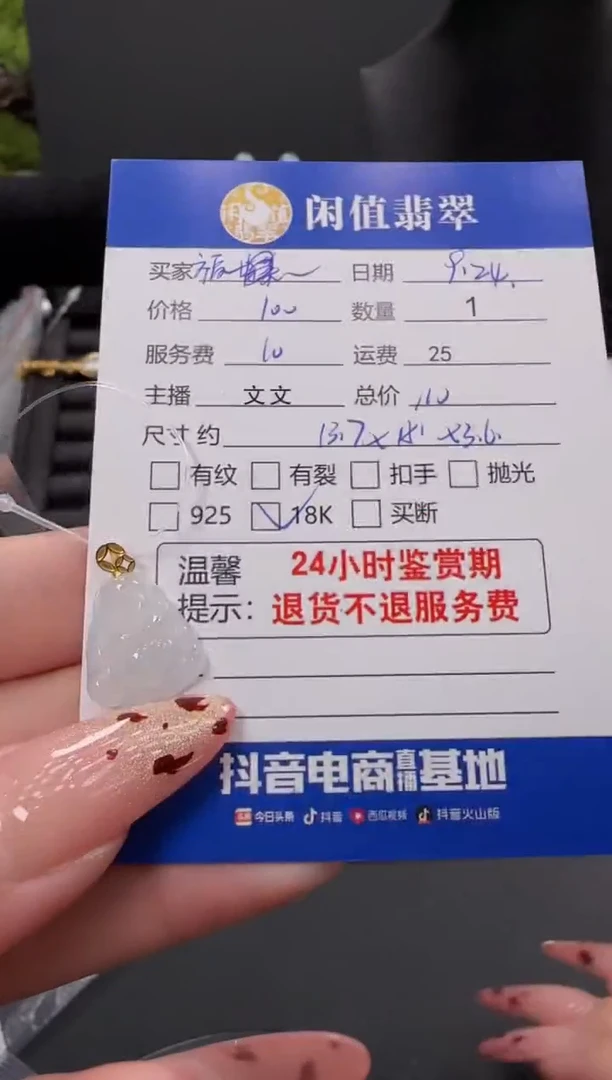 闲值翡翠
买家 日期 9.24.
价格 100 数量 1
服务费 10 运费 25
主播 文文 总价 110
尺寸约 13.7×15.1×3.6
有纹 有裂 扣手 抛光
925 18K 买断
温馨提示: 24小时鉴赏期
退货不退服务费
抖音电商直播基地
今日头条 抖音 西瓜视频 抖音火山版